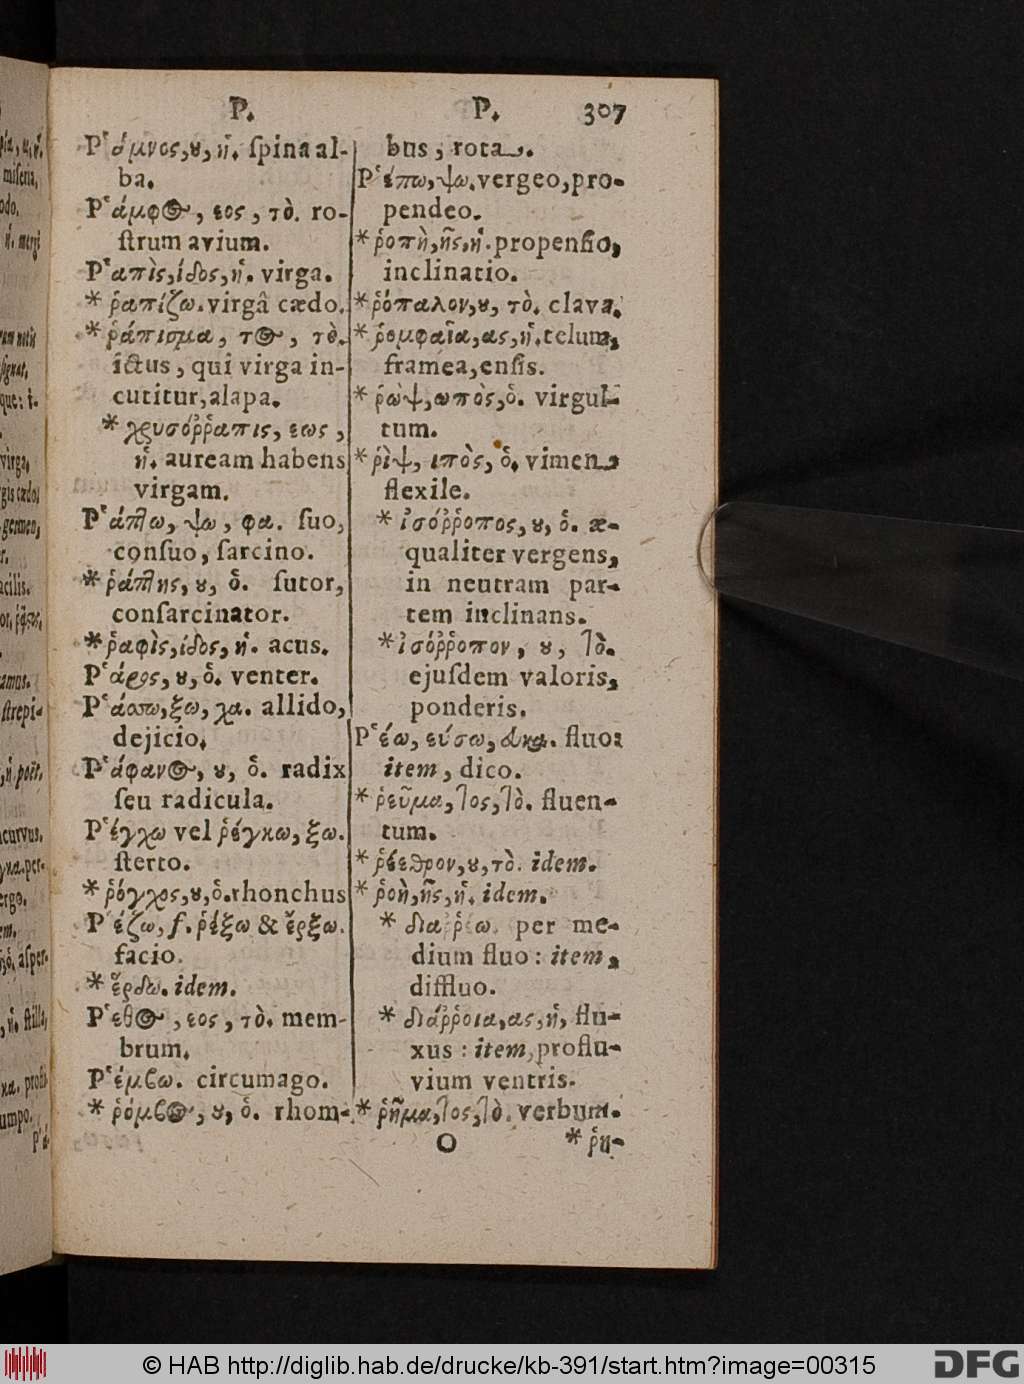 P. P. 307
Ῥάμνος, ου, ἡ. ſpina al-
ba.
Ῥάμφος, εος, τὸ. ro-
ſtrum avium.
Ῥαπὶς, ίδος, ἡ. virga.
* ῥαπίζω. virgâ cædo.
* ῥάπισμα, τος, τὸ.
ictus, qui virga in-
cutitur, alapa.
* χρυσόῤῥαπις, εως,
ἡ. auream habens
virgam.
Ῥάπτω, ψω, φα. ſuo,
conſuo, ſarcino.
* ῥάπτης, ου, ὁ. ſutor,
conſarcinator.
* ῥαφὶς, ίδος, ἡ. acus.
Ῥάρος, ου, ὁ. venter.
Ῥάσσω, ξω, χα. allido,
dejicio.
Ῥάφανος, ου, ὁ. radix
ſeu radicula.
Ῥέγχω vel ῥέγκω, ξω.
ſterto.
* ῥόγχος, ου, ὁ. rhonchus
Ῥέζω, f. ῥέξω & ἔρξω.
facio.
* ἔρδω. idem.
Ῥεθος, εος, τὸ. mem-
brum.
Ῥέμβω. circumago.
* ῥόμβος, ου, ὁ. rhom-
bus, rota.
Ῥέπω, ψω. vergeo, pro-
pendeo.
* ῥοπὴ, ῆς, ἡ. propenſio,
inclinatio.
* ῥόπαλον, ου, τὸ. clava.
* ῥομφαῖα, ας, ἡ. telum,
framea, enſis.
* ῥὼψ, ωπὸς, ὁ. virgul-
tum.
* ῥὶψ, ιπὸς, ὁ. vimen
flexile.
* ἰσόῤῥοπος, ου, ὁ. æ-
qualiter vergens,
in neutram par-
tem inclinans.
* ἰσόῤῥοπον, ου, τὸ.
ejuſdem valoris,
ponderis.
Ῥέω, εύσω, ευκα. fluo:
item, dico.
* ῥεῦμα, τος, τὸ. fluen-
tum.
* ῥέεθρον, ου, τὸ. idem.
* ῥοὴ, ῆς, ἡ. idem.
* διαῤῥέω. per me-
dium fluo: item,
diffluo.
* διάῤῥοια, ας, ἡ, flu-
xus: item, proflu-
vium ventris.
* ῥῆμα, τος, τὸ. verbum.
O * ῥη-
miſeria,
virga,
acilis.
ſtrepi-
curvus.
ergo.
aſper-
ſtilla,
umpo.
© HAB http://diglib.hab.de/drucke/kb-391/start.htm?image=00315
DFG